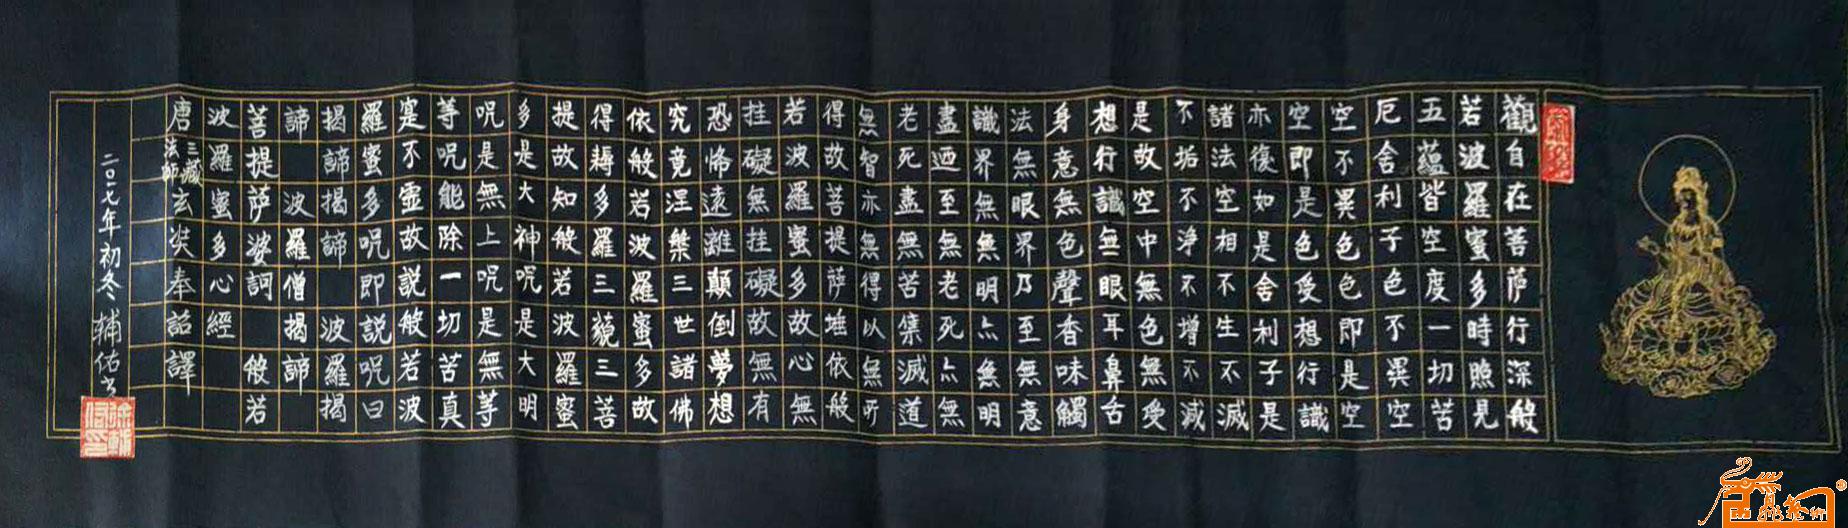 觀自在菩薩行深般
若波羅蜜多時照見
五蘊皆空度一切苦
厄舍利子色不異空
空不異色色即是空
空即是色受想行識
亦復如是舍利子是
諸法空相不生不滅
不垢不淨不增不減
是故空中無色無受
想行識無眼耳鼻舌
身意無色聲香味觸
法無眼界乃至無意
識界無無明亦無明
盡迺至無老死亦無
老死盡無苦集滅道
無智亦無得以無所
得故菩提薩埵依般
若波羅蜜多故心無
挂礙無挂礙故無有
恐怖遠離顛倒夢想
究竟涅槃三世諸佛
依般若波羅蜜多故
得耨多羅三藐三菩
提故知般若波羅蜜
多是大神咒是大明
咒是無上咒是無等
等咒能除一切苦真
寔不虛故説般若波
羅蜜多咒即説咒曰
揭諦揭諦 波羅揭
諦 波羅僧揭諦
菩提薩婆訶 般若
波羅蜜多心經
唐三藏法師玄奘奉詔譯
二〇一七年初冬輔佑书